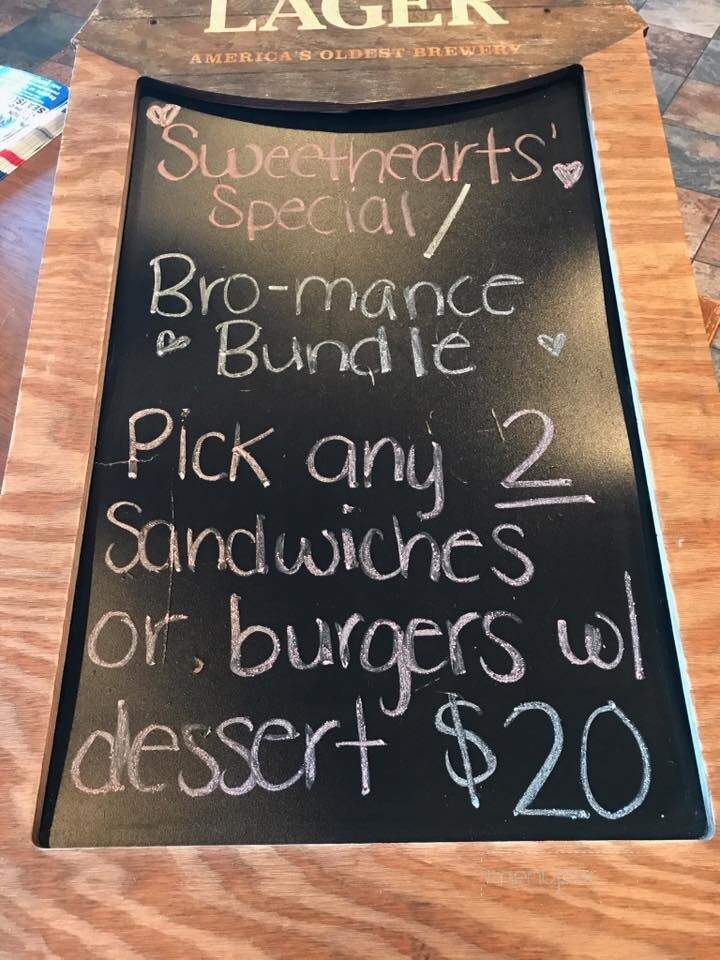 LAGER
AMERICA'S OLDEST BREWERY
Sweethearts'
Special /
Bro-mance
Bundle
Pick any 2
Sandwiches
or burgers w/
dessert $20